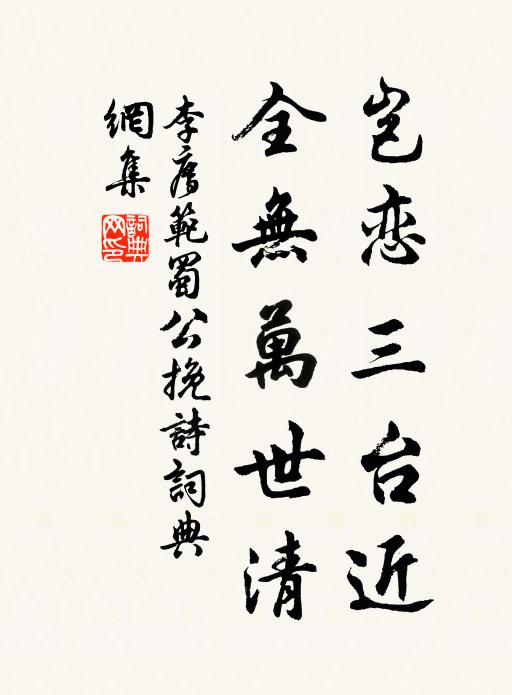 岂恋三台近
全無萬世清
李廌範蜀公挽詩詞典
網集
詞典网印